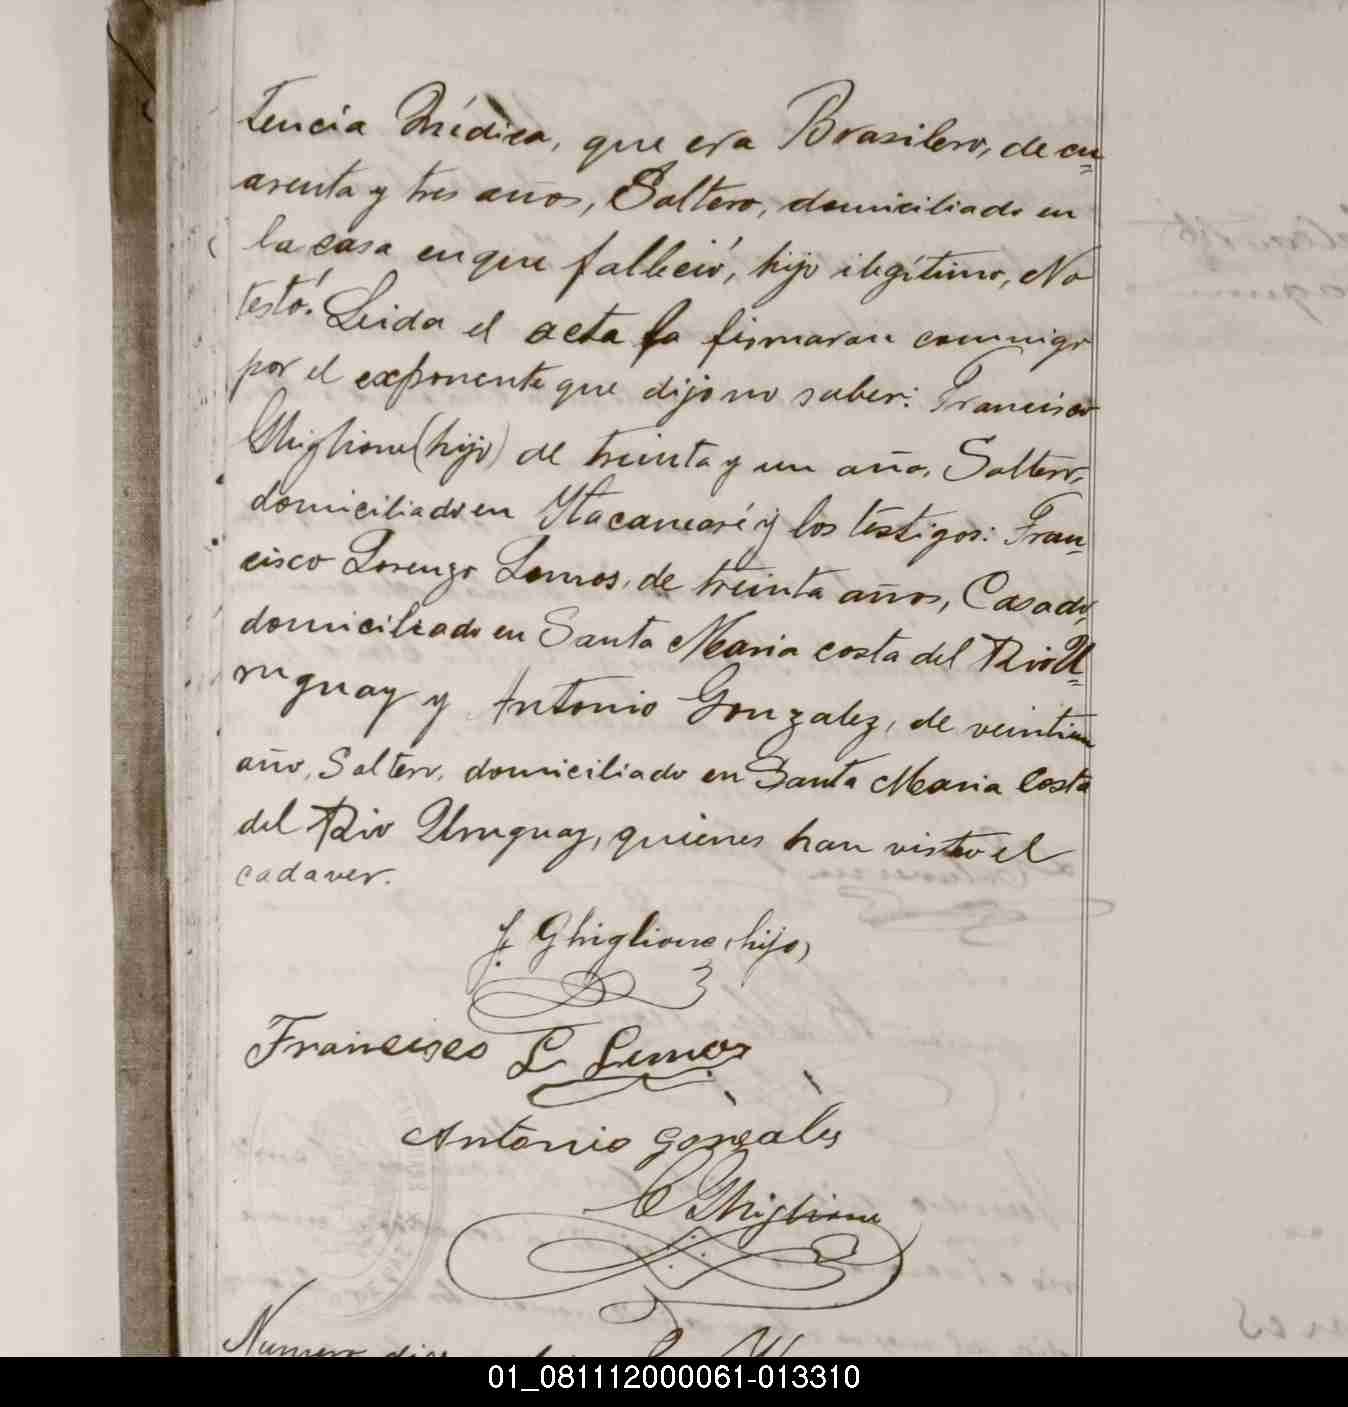 tencia Médica, que era Brasilero, de cu=
arenta y tres años, Soltero, domiciliado en
la casa en que falleció, hijo ilegítimo, No
testó. Leida el acta la firmaran conmigo
por el exponente que dijo no saber: Francisco
Ghiglione (hijo) de treinta y un año, Soltero,
domiciliado en Itacaruaré y los testigos: Fran=
cisco Lorenzo Lemos, de treinta años, Casado,
domiciliado en Santa Maria costa del Rio U=
ruguay y Antonio Gonzalez, de veintiun
año, Soltero, domiciliado en Santa Maria Costa
del Rio Uruguay, quienes han visto el
cadaver.
f. Ghiglione, hijo,
Francisco L Lemos
Antonio Gonsales
C Ghiglione
Numero
01_081112000061-013310